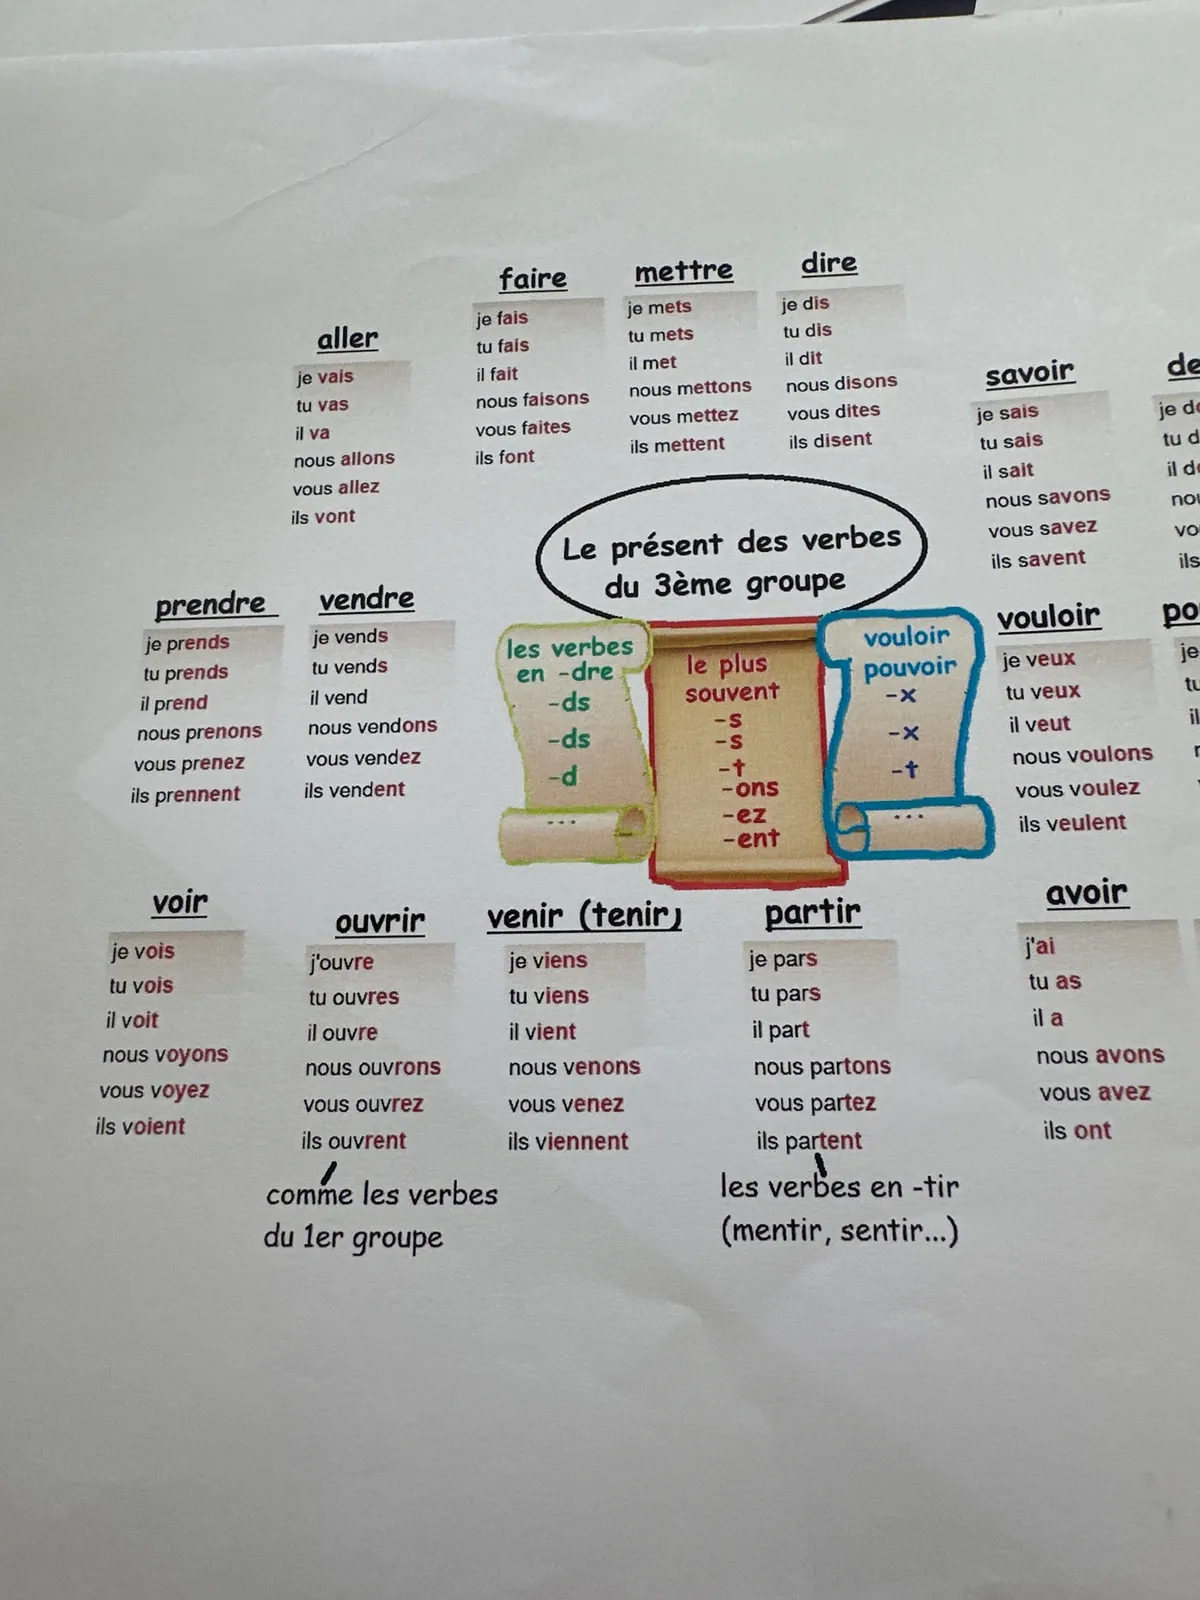 faire
je fais
tu fais
il fait
nous faisons
vous faites
ils font
mettre
je mets
tu mets
il met
nous mettons
vous mettez
ils mettent
dire
je dis
tu dis
il dit
nous disons
vous dites
ils disent
aller
je vais
tu vas
il va
nous allons
vous allez
ils vont
savoir
je sais
tu sais
il sait
nous savons
vous savez
ils savent
de
je do
tu d
il do
nou
vo
ils
Le présent des verbes
du 3ème groupe
prendre
je prends
tu prends
il prend
nous prenons
vous prenez
ils prennent
vendre
je vends
tu vends
il vend
nous vendons
vous vendez
ils vendent
les verbes
en -dre
-ds
-ds
-d
...
le plus
souvent
-s
-s
-t
-ons
-ez
-ent
vouloir
pouvoir
-x
-x
-t
...
vouloir
je veux
tu veux
il veut
nous voulons
vous voulez
ils veulent
po
je
tu
il
voir
je vois
tu vois
il voit
nous voyons
vous voyez
ils voient
ouvrir
j'ouvre
tu ouvres
il ouvre
nous ouvrons
vous ouvrez
ils ouvrent
comme les verbes
du 1er groupe
venir (tenir)
je viens
tu viens
il vient
nous venons
vous venez
ils viennent
partir
je pars
tu pars
il part
nous partons
vous partez
ils partent
les verbes en -tir
(mentir, sentir...)
avoir
j'ai
tu as
il a
nous avons
vous avez
ils ont